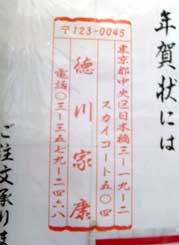 年賀状には
〒123-0045
東京都中央区日本橋三ー一九ー二
スカイコート五〇四
徳川家康
電話〇三ー三五七九ー二四六八
ご注文承りま